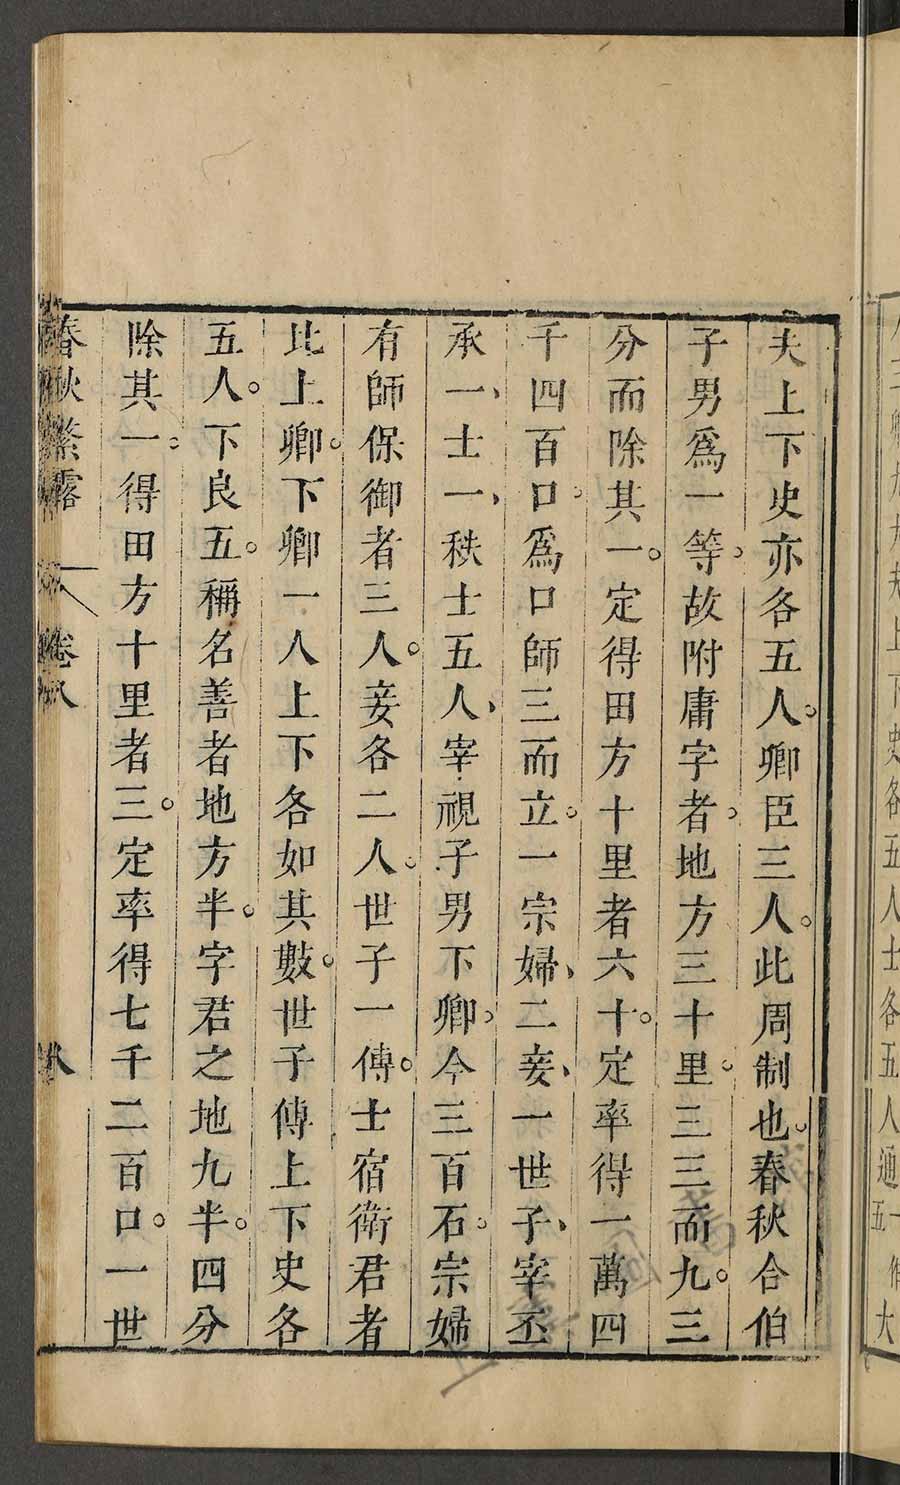 夫上下史亦各五人。卿臣三人。此周制也。春秋合伯
子男爲一等。故附庸字者。地方三十里。三三而九。三
分而除其一。定得田方十里者六十。定率得一萬四
千四百口。爲口師三而立。一宗婦、二妾、一世子、宰丞
承一、士一、秩士五人、宰視子男下卿。今三百石。宗婦
有師保御者三人。妾各二人。世子一傅。士宿衛君者
比上卿。下卿一人上下各如其數。世子傅上下史各
五人。下良五。稱名善者地方半。字君之地九半。四分
除其一。得田方十里者三。定率得七千二百口。一世
春秋繁露 卷八 八